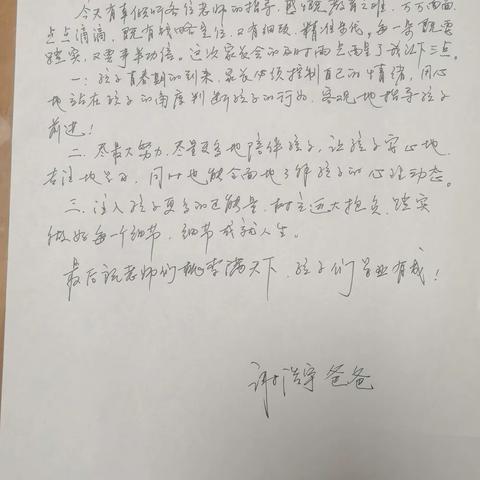 今天有幸倾听各位老师的指导，图文说教育之难，方方面面
点点滴滴，既有战略定位，又有细致，精准步伐。每一条既要
踏实，又要事半功倍。这次家长会的及时雨点醒了我以下三点。
一：孩子青春期的到来，家长必须控制自己的情绪，同心
地站在孩子的角度判断孩子的行为，客观地指导孩子
前进！
二、尽最大努力，尽量更多地陪伴孩子，让孩子安心地
专注地学习，同时也能全面地了解孩子的心理动态。
三、注入孩子更多的正能量，树立远大抱负，踏实
做好每一个细节，细节成就人生。
最后祝老师们桃李满天下，孩子们学业有成！
谢浩宇爸爸